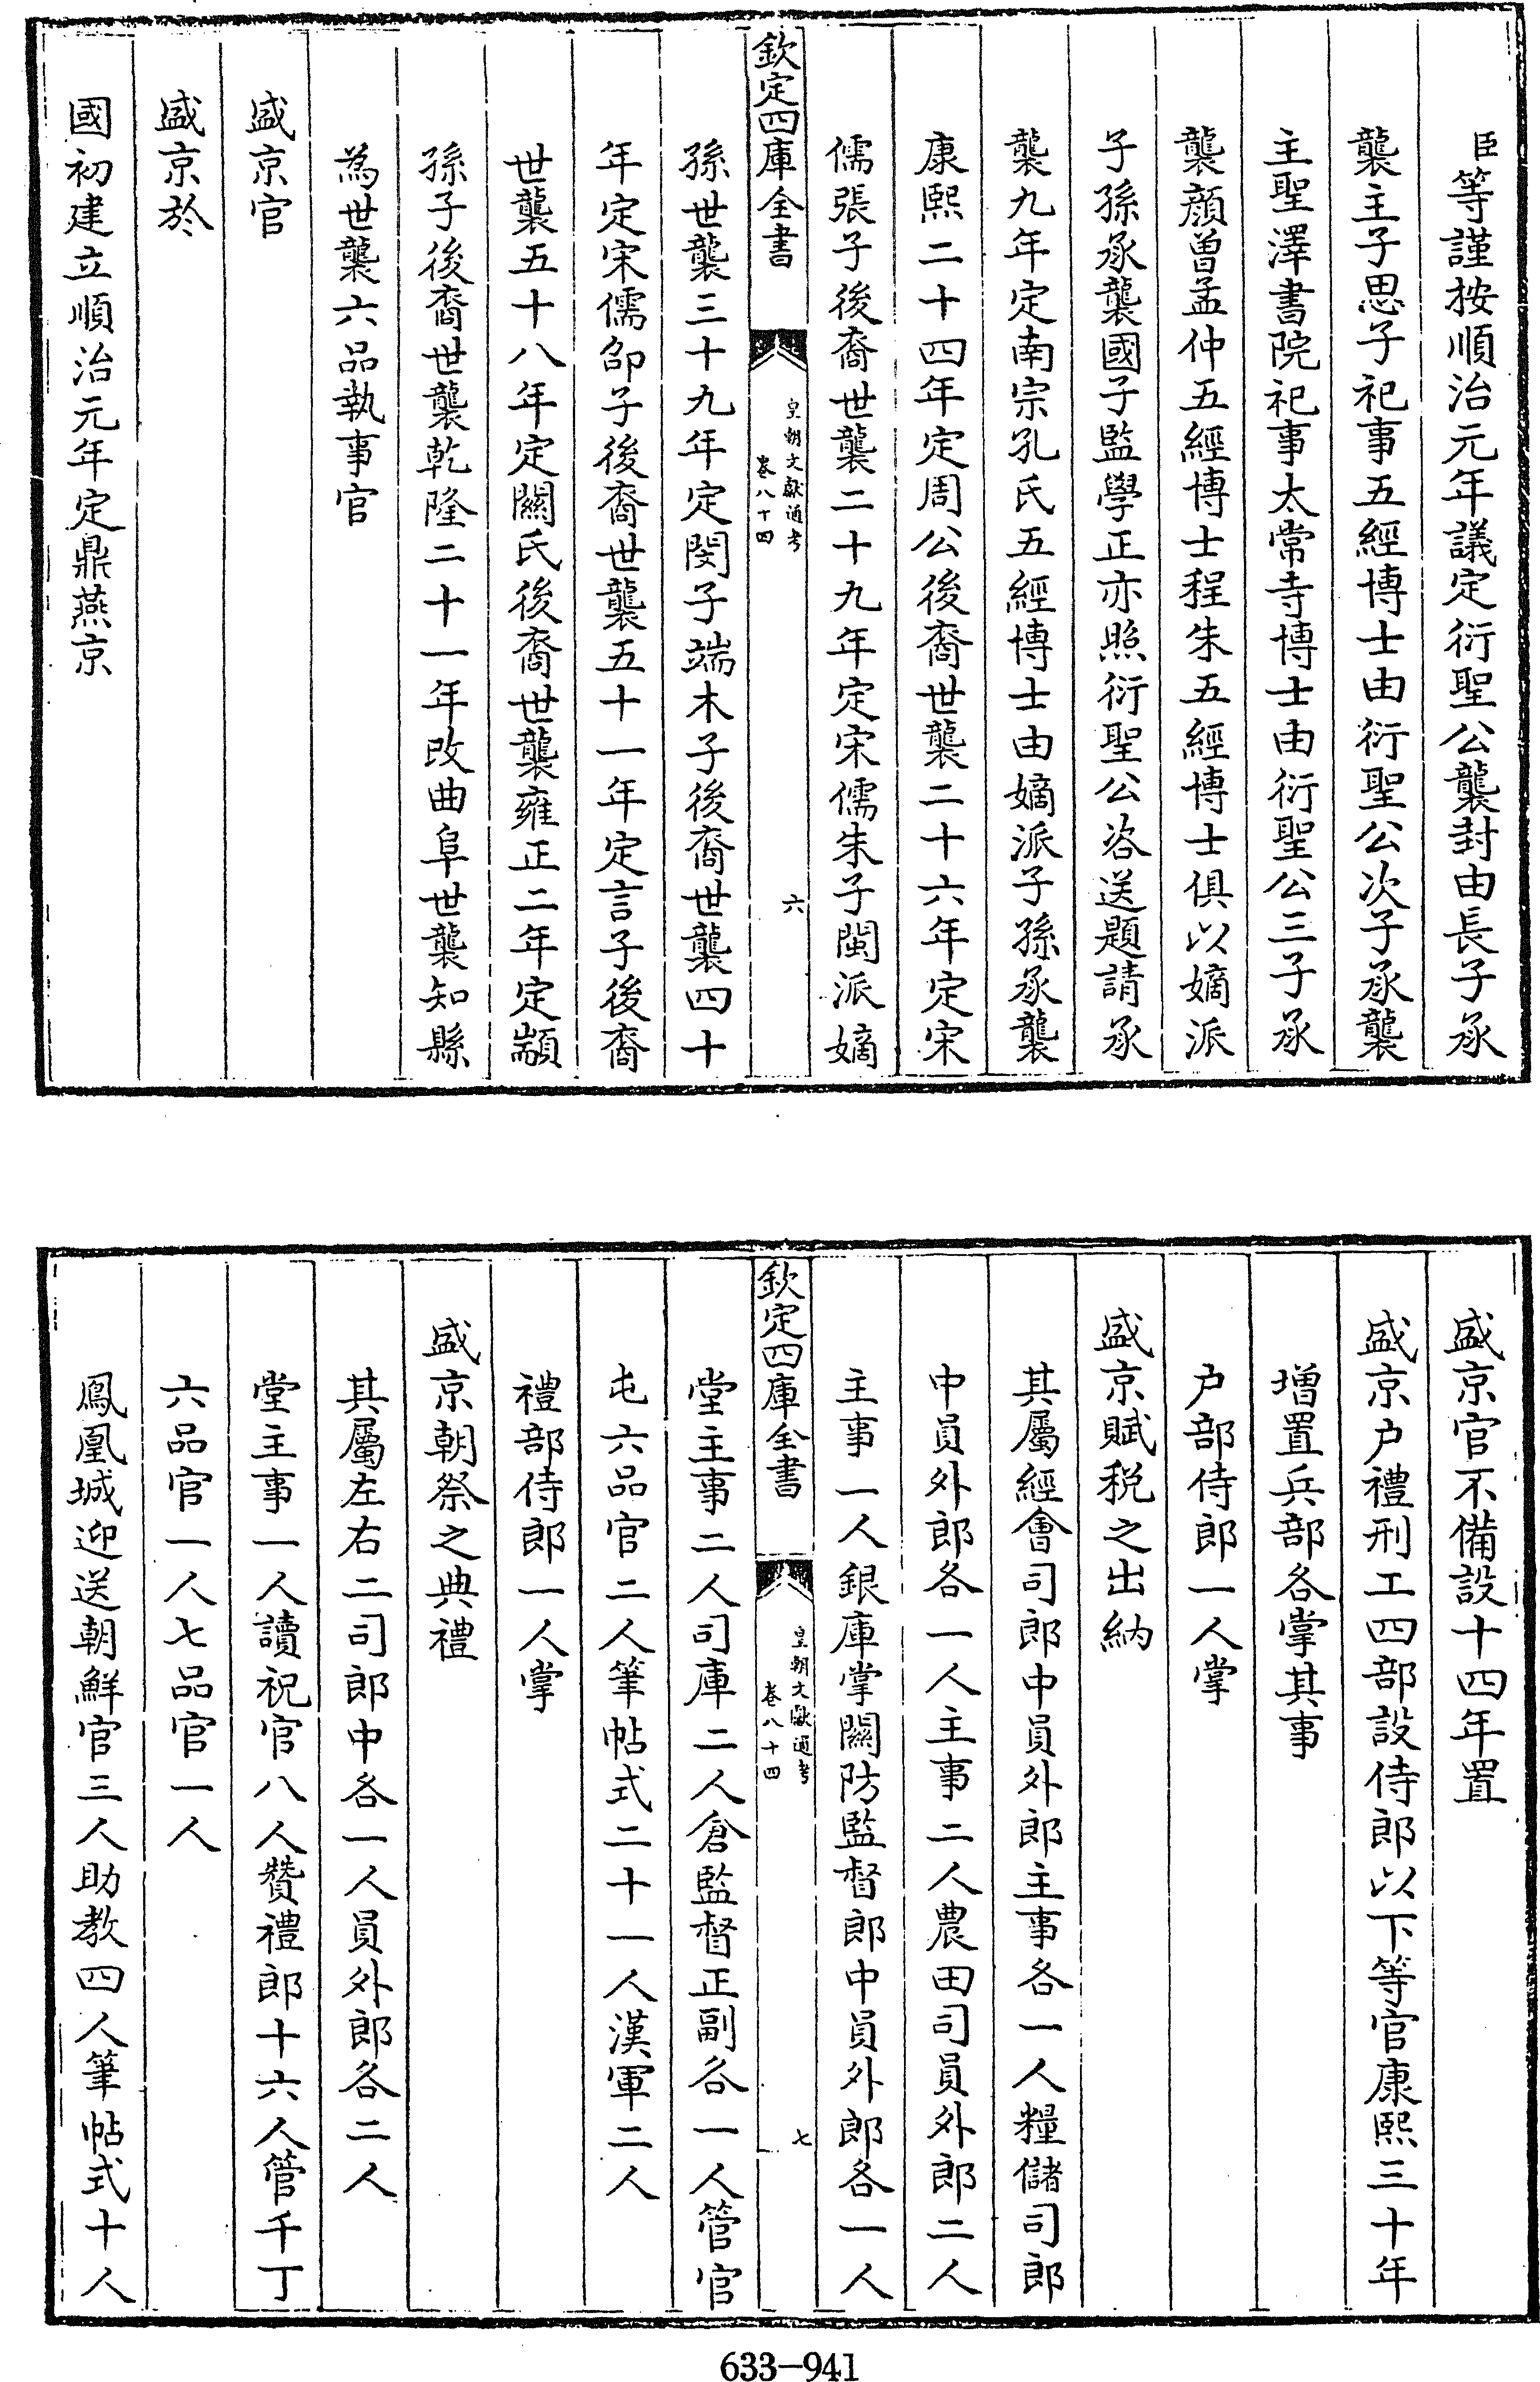 臣等謹按順治元年議定衍聖公襲封由長子承
襲主子思子祀事五經博士由衍聖公次子承襲
主聖澤書院祀事太常寺博士由衍聖公三子承
襲顔曾孟仲五經博士程朱五經博士俱以嫡派
子孫承襲國子監學正亦照衍聖公咨送題請承
襲九年定南宗孔氏五經博士由嫡派子孫承襲
康熙二十四年定周公後裔世襲二十六年定宋
儒張子後裔世襲二十九年定宋儒朱子閩派嫡
欽定四庫全書
皇朝文獻通考
卷八十四
六
孫世襲三十九年定閔子端木子後裔世襲四十
年定宋儒邵子後裔世襲五十一年定言子後裔
世襲五十八年定關氏後裔世襲雍正二年定顓
孫子後裔世襲乾隆二十一年改曲阜世襲知縣
為世襲六品執事官
盛京官
盛京於
國初建立順治元年定鼎燕京
盛京官不備設十四年置
盛京户禮刑工四部設侍郎以下等官康熙三十年
增置兵部各掌其事
户部侍郎一人掌
盛京賦税之出納
其屬經會司郎中員外郎主事各一人糧儲司郎
中員外郎各一人主事二人農田司員外郎二人
主事一人銀庫掌關防監督郎中員外郎各一人
欽定四庫全書
皇朝文獻通考
卷八十四
七
堂主事二人司庫二人倉監督正副各一人管官
屯六品官二人筆帖式二十一人漢軍二人
禮部侍郎一人掌
盛京朝祭之典禮
其屬左右二司郎中各一人員外郎各二人
堂主事一人讀祝官八人贊禮郎十六人管千丁
六品官一人七品官一人
鳳凰城迎送朝鮮官三人助教四人筆帖式十人
633-941